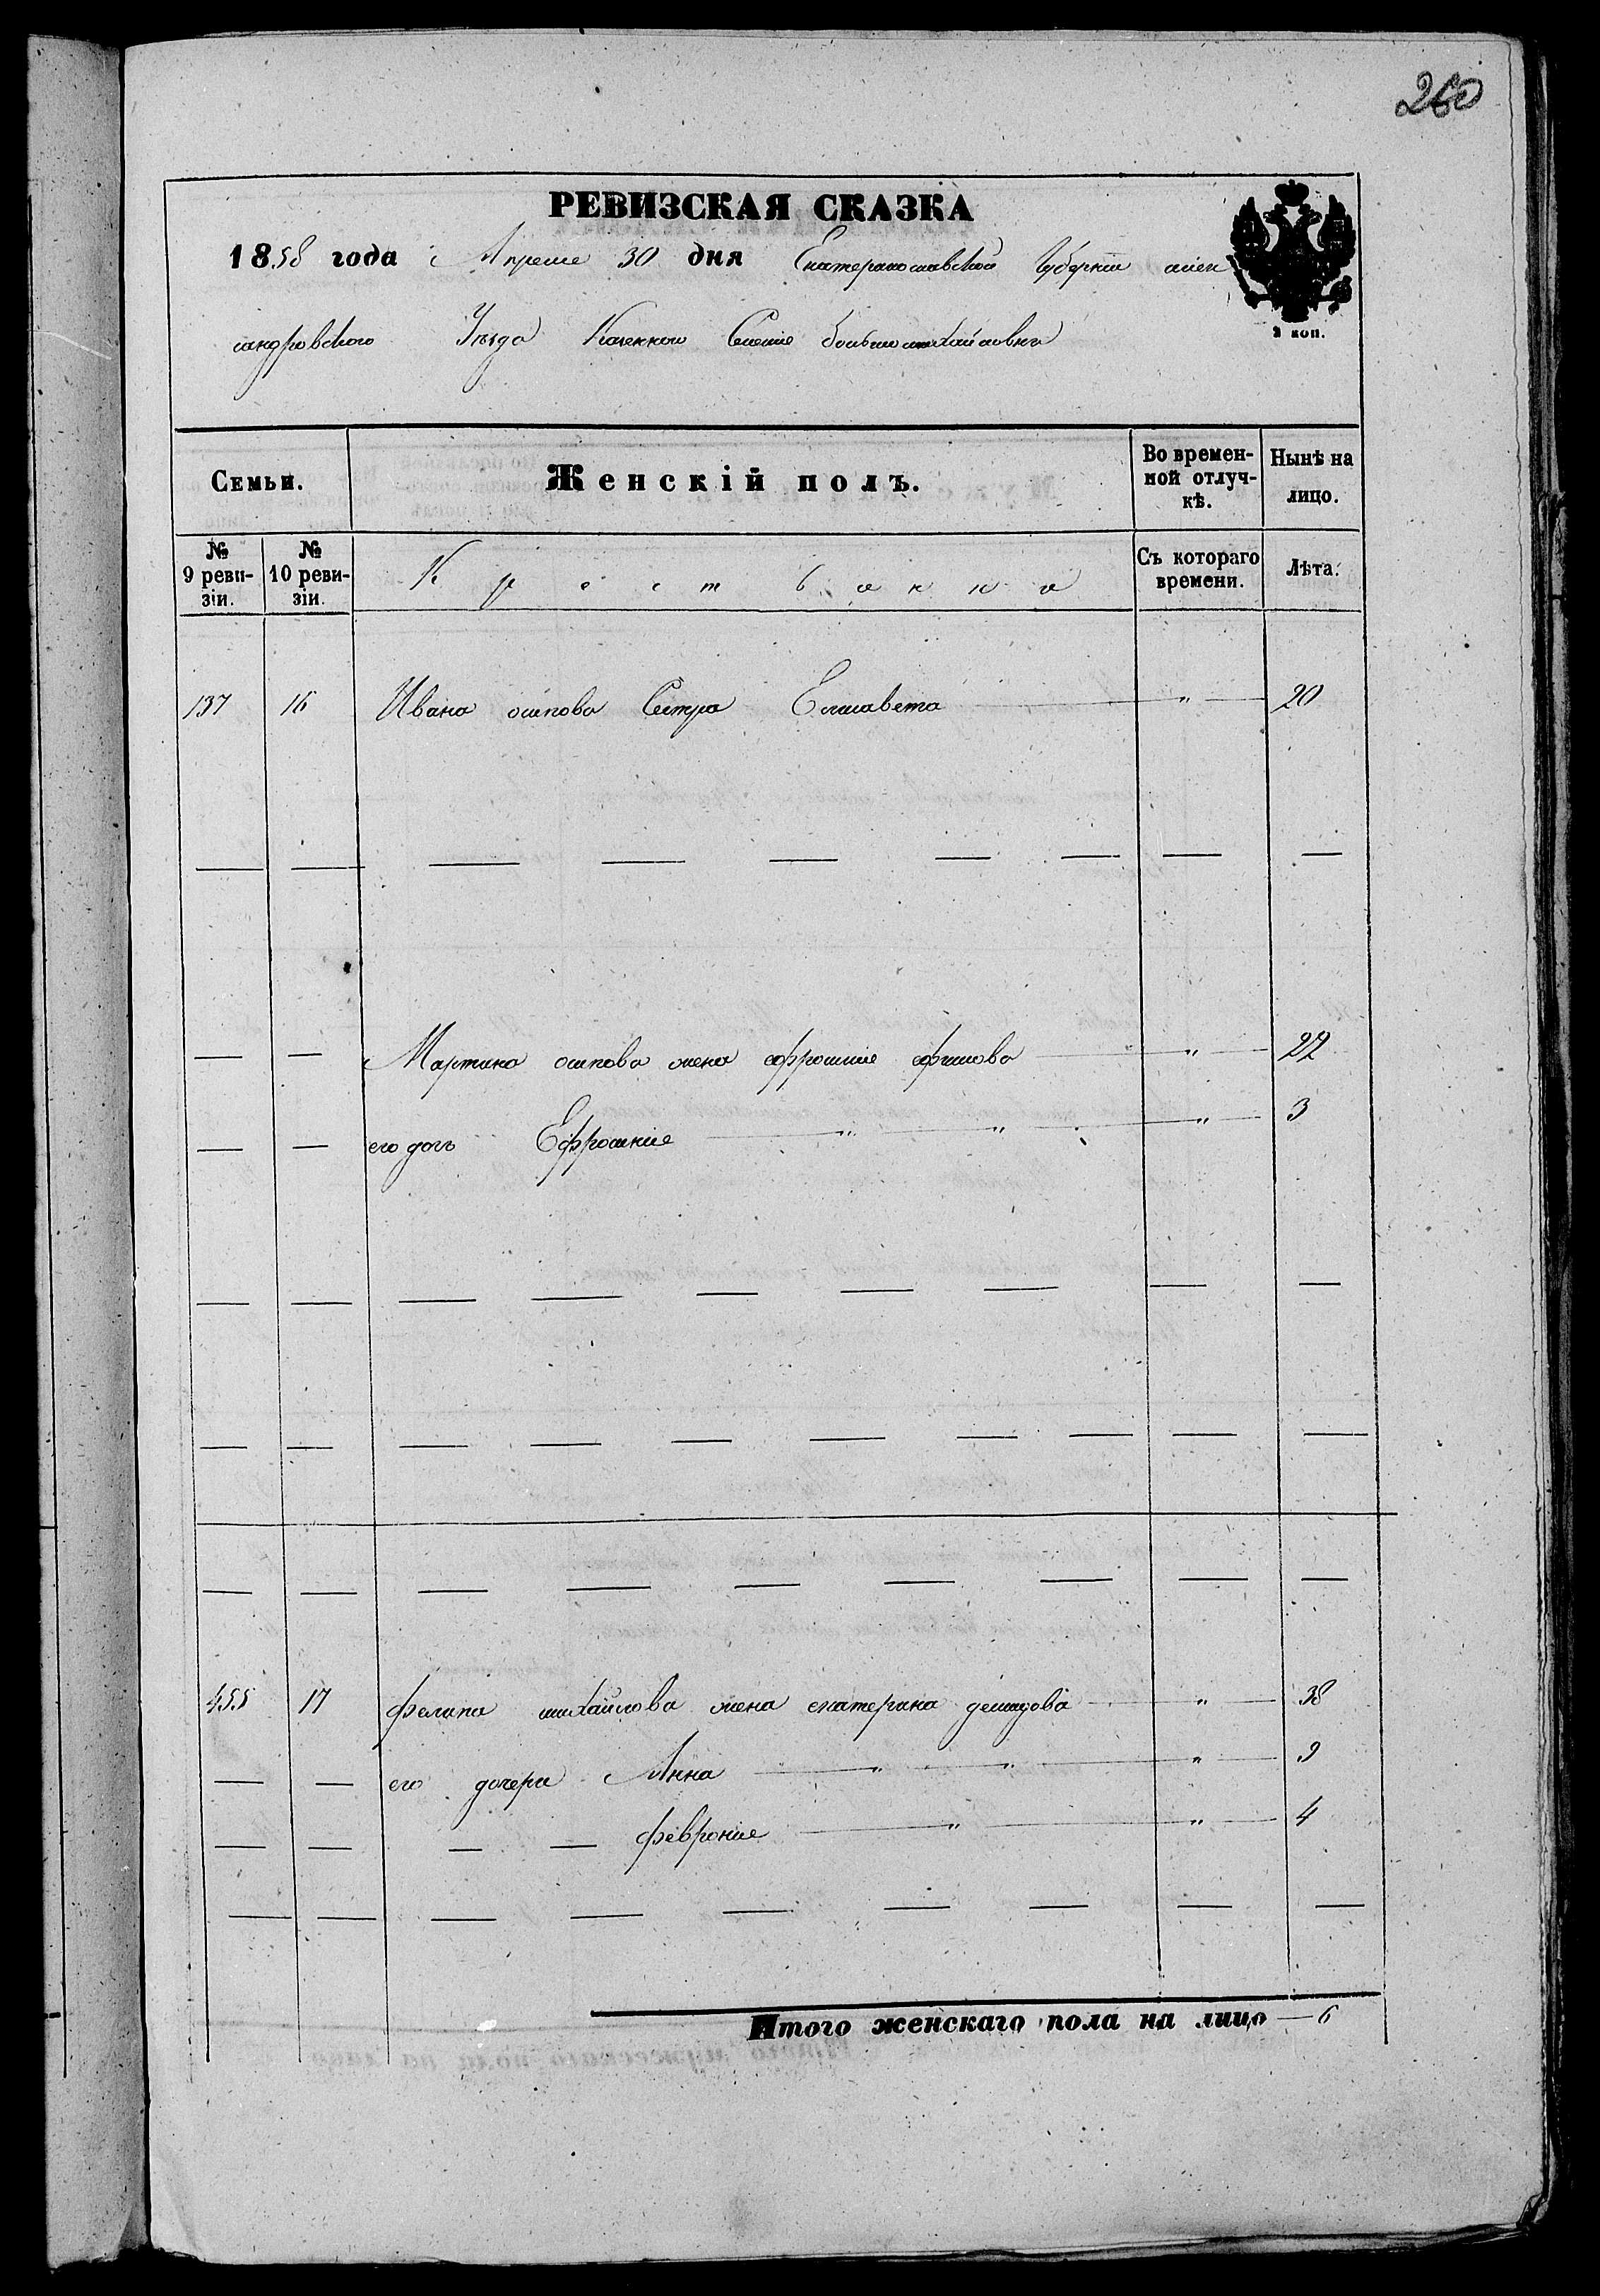 260
РЕВИЗСКАЯ СКАЗКА
1858 года Апреля 30 дня Екатеринославской Губернии алек
сандровского Уезда Казенного Селение большомихайловки
2 коп.
Семьи. Женскій полъ. Во временной отлучкѣ. Нынѣ на лицо.
№ 9 ревизіи. № 10 ревизіи. Крестьянки Съ котораго времени. Лѣта.
137 16 Ивана осипова Сестра Елисавета — " — 20
— — Мартина осипова жена ефросиния ефимова — " — 22
— — его дочь Ефросиния — " — " — " — 3
455 17 филипа михайлова жена екатерина демидова — " — 38
— — его дочери Анна — " — " — " — 9
— — — — феврония — " — " — 4
Итого женскаго пола на лицо — 6